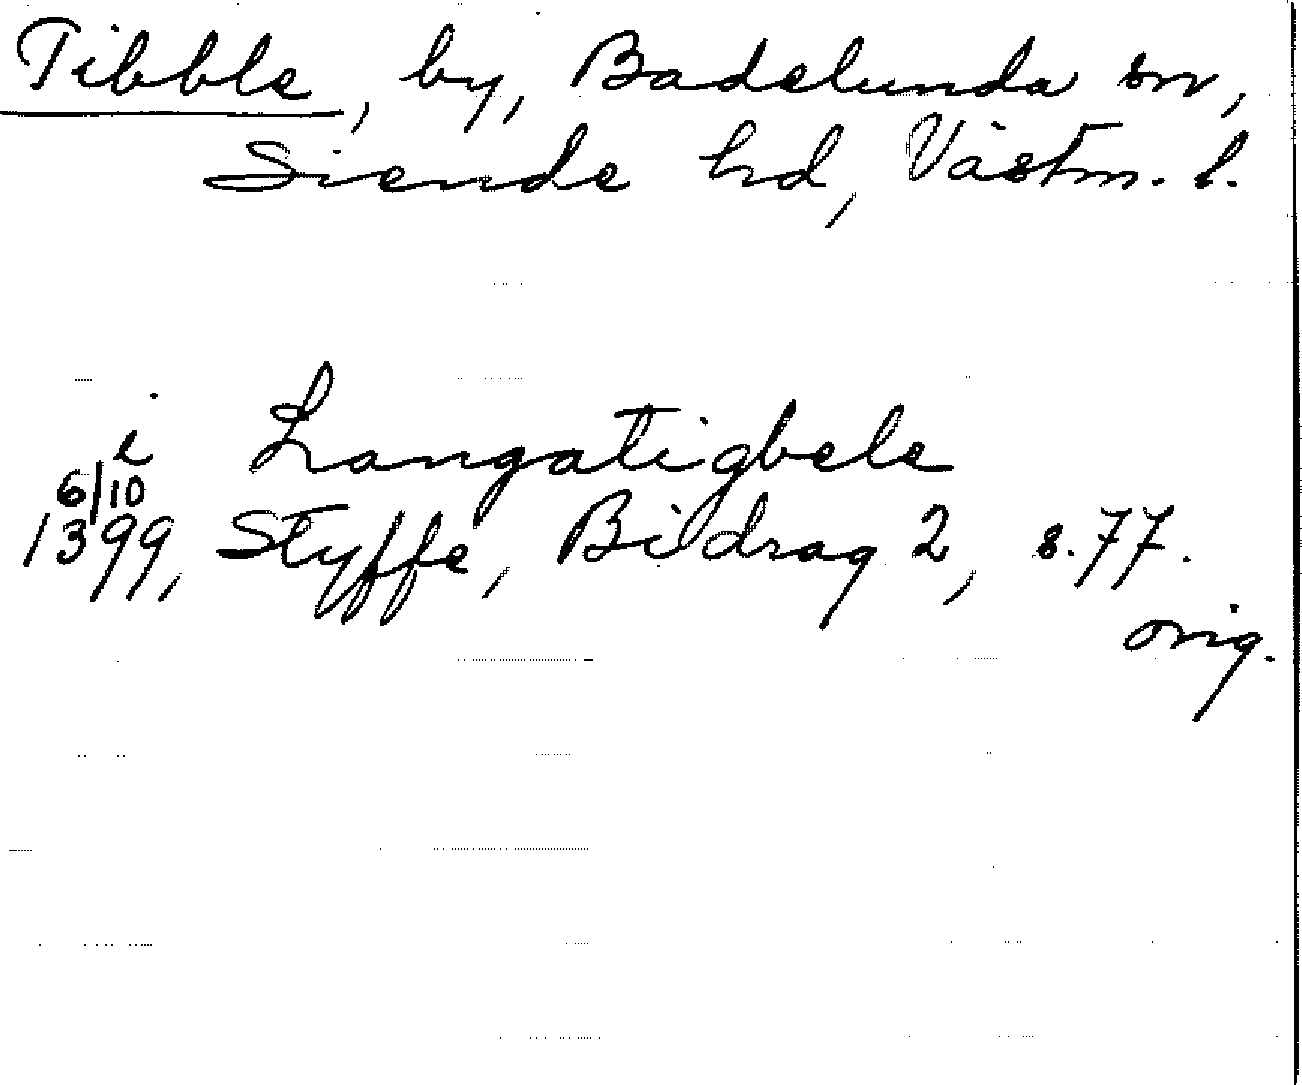 Tibble, by, Badelunda sn,
Siende hd, Västm. l.
i Langatigbele
6/10
1399, Styffe, Bidrag 2, s. 77.
orig.